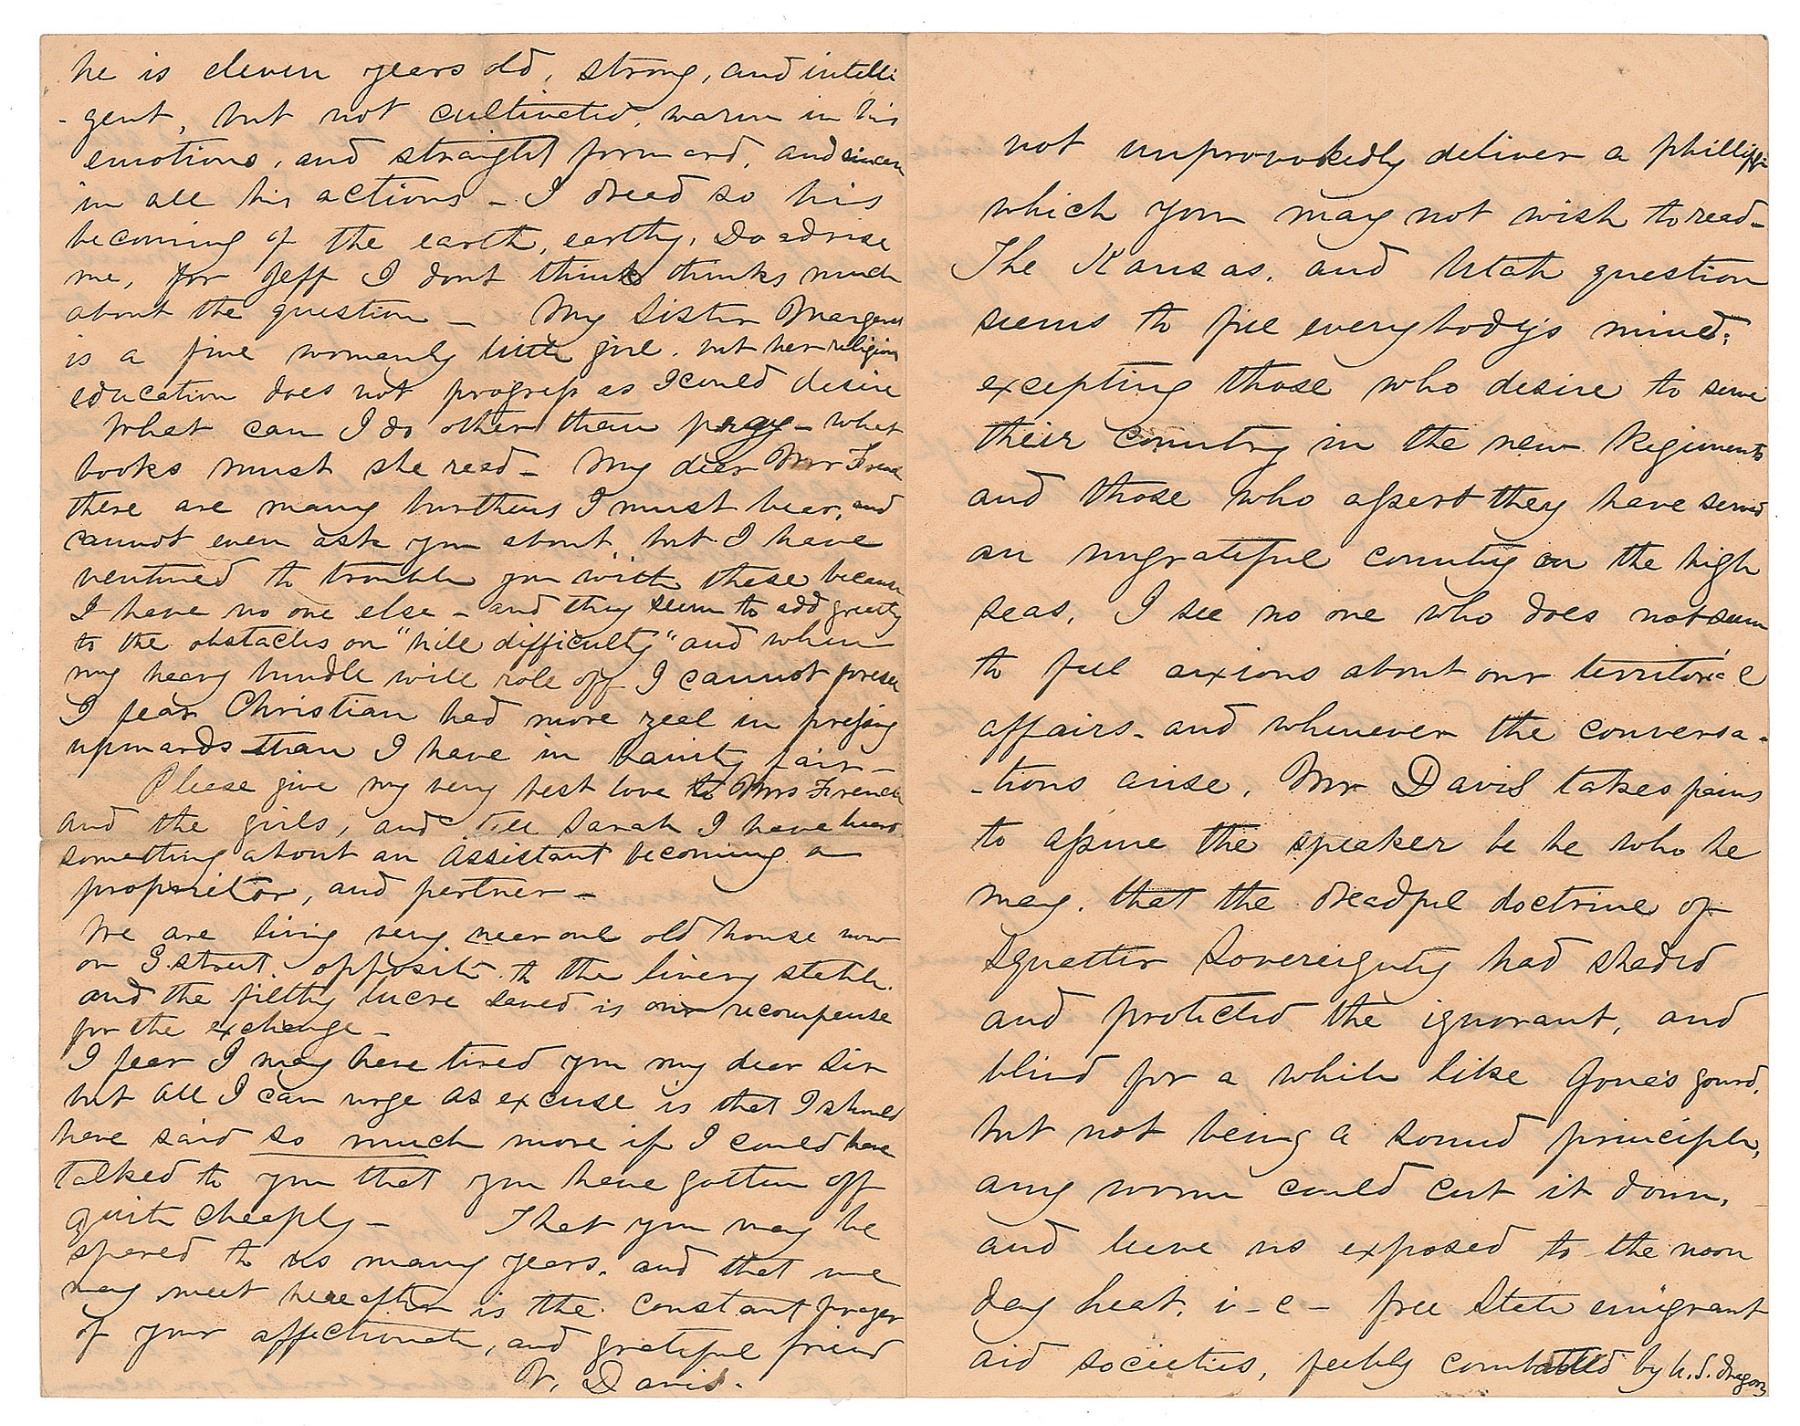 he is eleven years old, strong, and intelli
- gent, but not cultivated, warm in his
emotions, and straight forward, and sincere
in all his actions - I dread so his
becoming of the earth, earthy. Do advise
me, for Jeff I dont think thinks much
about the question - My Sister Margaret
is a fine womanly little girl, but her religious
education does not progress as I could desire
What can I do other than pray - what
books must she read - My dear Mr French
there are many burthens I must bear, and
cannot even ask you about, but I have
ventured to trouble you with these because
I have no one else - and they seem to add greatly
to the obstacles on "hill difficulty" and when
my heavy bundle will role off I cannot foresee
I fear Christian had more zeal in pressing
upwards than I have in vanity fair -
Please give my very best love to Mrs French
and the girls, and tell Sarah I have heard
something about an assistant becoming a
proprietor, and partner -
We are living very near our old house now
on I street, opposite to the livery stable.
and the filthy lucre saved is our recompense
for the exchange -
I fear I may have tired you my dear Sir
but all I can urge as excuse is that I should
have said so much more if I could have
talked to you that you have gotten off
quite cheaply - That you may be
spared to us many years, and that we
may meet hereafter is the constant prayer
of your affectionate, and grateful friend
V. Davis.
not unprovokedly deliver a phillippic
which you may not wish to read -
The Kansas, and Utah question
seems to fill everybody's mind;
excepting those who desire to serve
their country in the new Regiments
and those who assert they have served
an ungrateful country on the high
seas, I see no one who does not seem
to feel anxious about our territorial
affairs - and whenever the conversa -
- tions arise, Mr Davis takes pains
to assure the speaker be he who he
may, that the dreadful doctrine of
Squatter Sovereignty had shaded
and protected the ignorant, and
blind for a while like Jone's gourd,
but not being a sound principle,
any worm could cut it down,
and leave us exposed to the noon
day heat, i - e - free State emigrant
aid societies, feebly combatted by U.S. dragoons